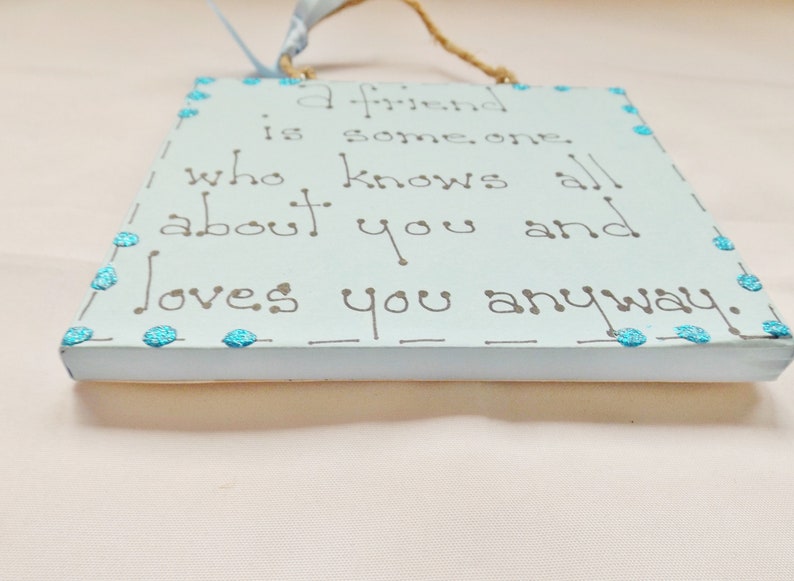 a friend
is someone
who knows all
about you and
loves you anyway.